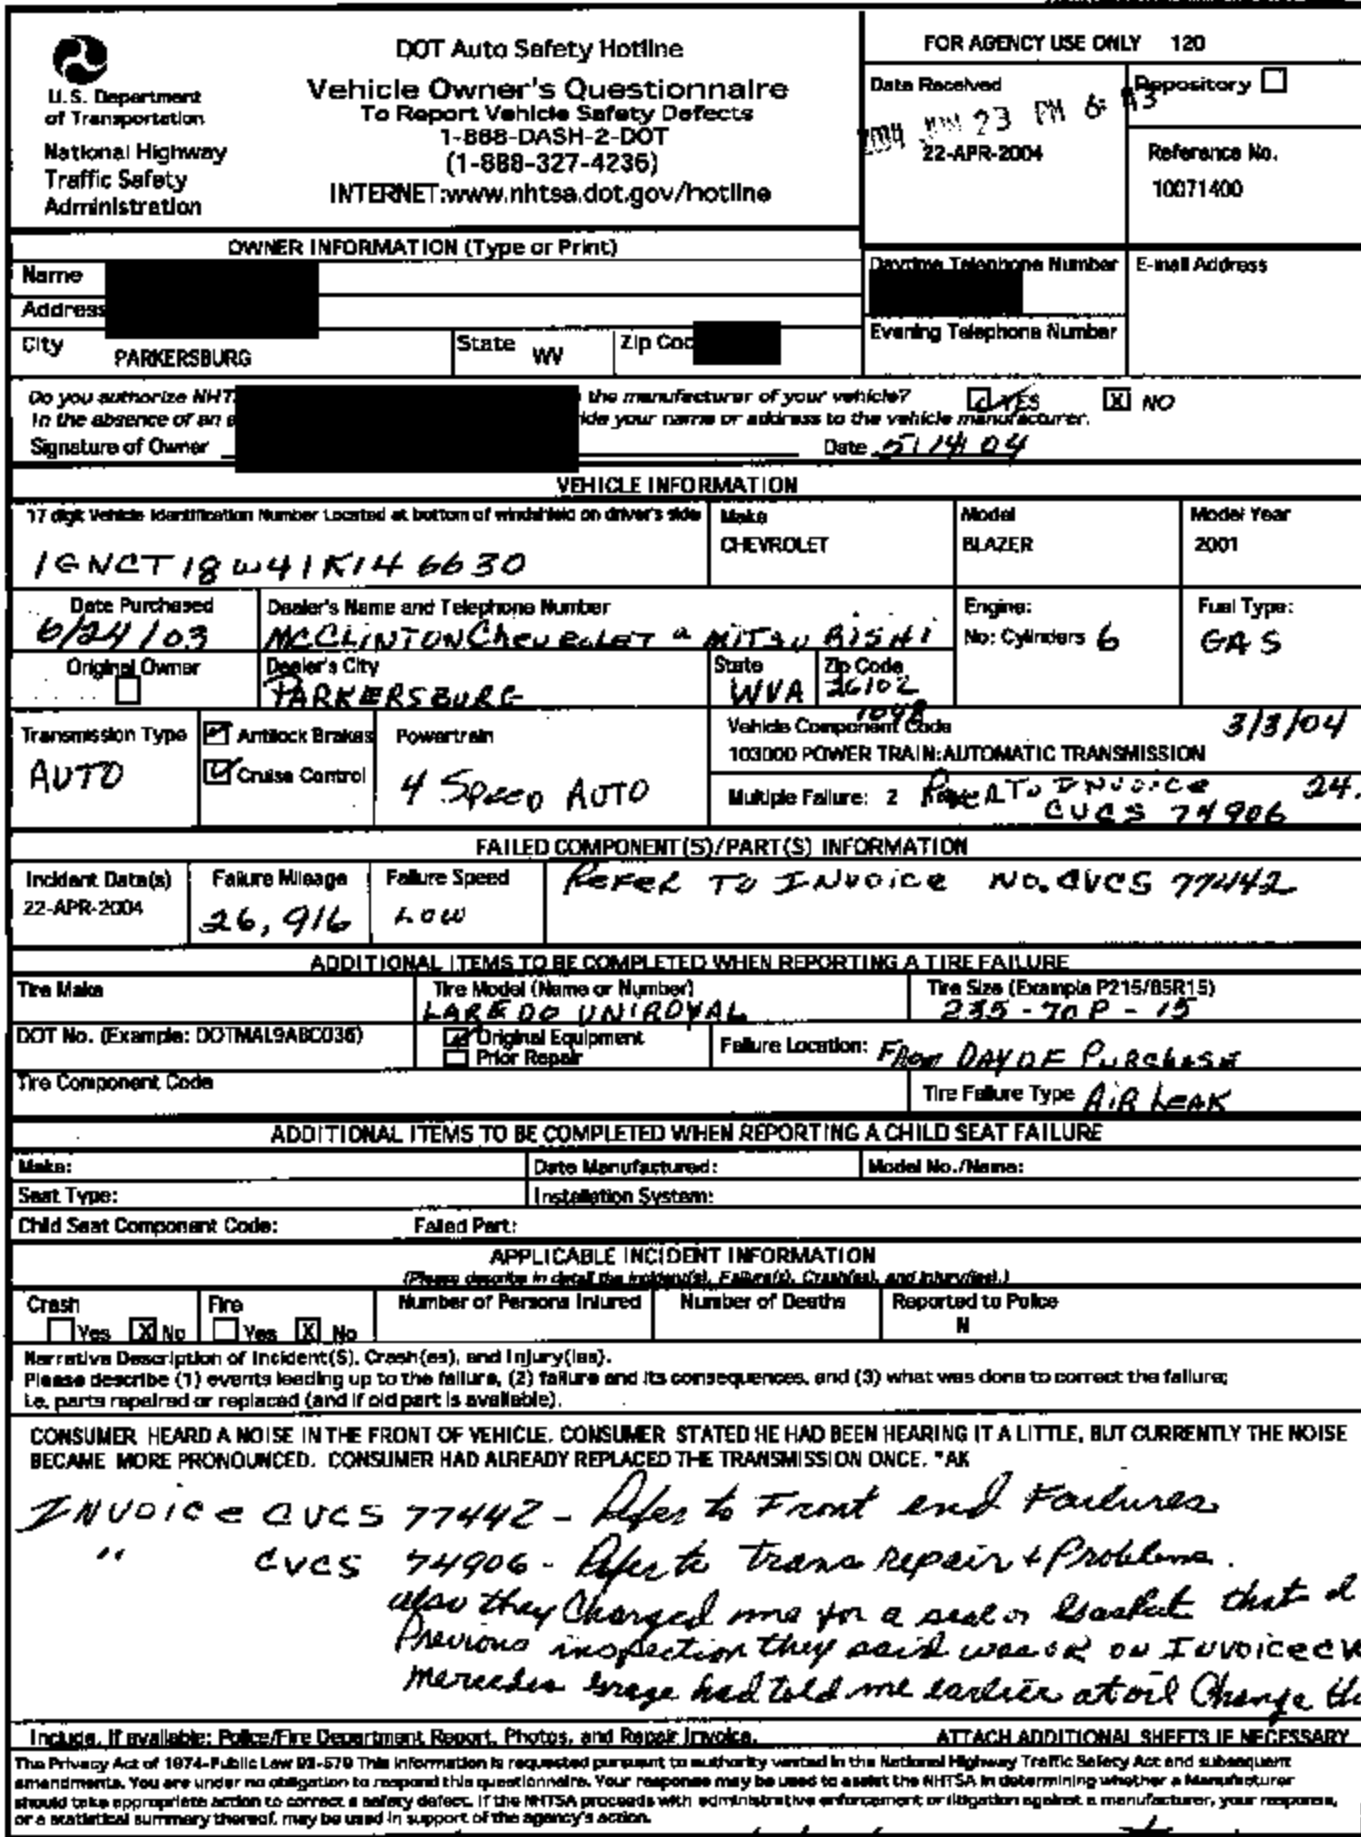 DOT Auto Safety Hotline
Vehicle Owner's Questionnaire
To Report Vehicle Safety Defects
1-888-DASH-2-DOT
(1-888-327-4236)
INTERNET:www.nhtsa.dot.gov/hotline
U.S. Department
of Transportation
National Highway
Traffic Safety
Administration
FOR AGENCY USE ONLY 120
Date Received
2004 JUN 23 PM 6:
22-APR-2004
Repository
Reference No.
10071400
OWNER INFORMATION (Type or Print)
Name
Address
City PARKERSBURG State WV Zip Cod
Daytime Telephone Number
Evening Telephone Number
E-mail Address
Do you authorize NHT the manufacturer of your vehicle? YES X NO
In the absence of an a ide your name or address to the vehicle manufacturer.
Signature of Owner Date 5/14/04
VEHICLE INFORMATION
17 digit Vehicle Identification Number Located at bottom of windshield on driver's side
1GNCT18W41K146630
Make
CHEVROLET
Model
BLAZER
Model Year
2001
Date Purchased
6/24/03
Dealer's Name and Telephone Number
MCCLINTON CHEVROLET MITSUBISHI
Engine:
No: Cylinders 6
Fuel Type:
GAS
Original Owner
Dealer's City
PARKERSBURG
State
WVA
Zip Code
26102
1048
Transmission Type
AUTO
Antilock Brakes
Cruise Control
Powertrain
4 Speed AUTO
Vehicle Component Code 3/3/04
103000 POWER TRAIN:AUTOMATIC TRANSMISSION
Multiple Failure: 2 Refer To INVOICE 24.
CVCS 74906
FAILED COMPONENT(S)/PART(S) INFORMATION
Incident Date(s)
22-APR-2004
Failure Mileage
26,916
Failure Speed
LOW
REFER TO INVOICE NO. CVCS 77442
ADDITIONAL ITEMS TO BE COMPLETED WHEN REPORTING A TIRE FAILURE
Tire Make
Tire Model (Name or Number)
LAREDO UNIROYAL
Tire Size (Example P215/65R15)
235-70P-15
DOT No. (Example: DOTMAL9ABC036)
Original Equipment
Prior Repair
Failure Location: From DAY OF PURCHASE
Tire Component Code
Tire Failure Type AIR LEAK
ADDITIONAL ITEMS TO BE COMPLETED WHEN REPORTING A CHILD SEAT FAILURE
Make: Date Manufactured: Model No./Name:
Seat Type: Installation System:
Child Seat Component Code: Failed Part:
APPLICABLE INCIDENT INFORMATION
(Please describe in detail the incident(s), Failure(s), Crash(es), and injury(ies).)
Crash
Yes X No
Fire
Yes X No
Number of Persons Injured
Number of Deaths
Reported to Police
N
Narrative Description of Incident(S), Crash(es), and Injury(ies).
Please describe (1) events leading up to the failure, (2) failure and its consequences, and (3) what was done to correct the failure;
i.e. parts repaired or replaced (and if old part is available).
CONSUMER HEARD A NOISE IN THE FRONT OF VEHICLE. CONSUMER STATED HE HAD BEEN HEARING IT A LITTLE, BUT CURRENTLY THE NOISE
BECAME MORE PRONOUNCED. CONSUMER HAD ALREADY REPLACED THE TRANSMISSION ONCE. *AK
INVOICE CVCS 77442 - Refer to Front end Failures
" CVCS 74906 - Refer to trans repair & Problems.
also they Charged me for a seal or Gasket that
Previous inspection they said was OK on Invoice
Mercedes Garage had told me earlier at oil Change
Include, If available: Police/Fire Department Report, Photos, and Repair Invoice. ATTACH ADDITIONAL SHEETS IF NECESSARY
The Privacy Act of 1974-Public Law 93-579 This information is requested pursuant to authority vested in the National Highway Traffic Safety Act and subsequent
amendments. You are under no obligation to respond this questionnaire. Your response may be used to assist the NHTSA in determining whether a Manufacturer
should take appropriate action to correct a safety defect. If the NHTSA proceeds with administrative enforcement or litigation against a manufacturer, your response,
or a statistical summary thereof, may be used in support of the agency's action.